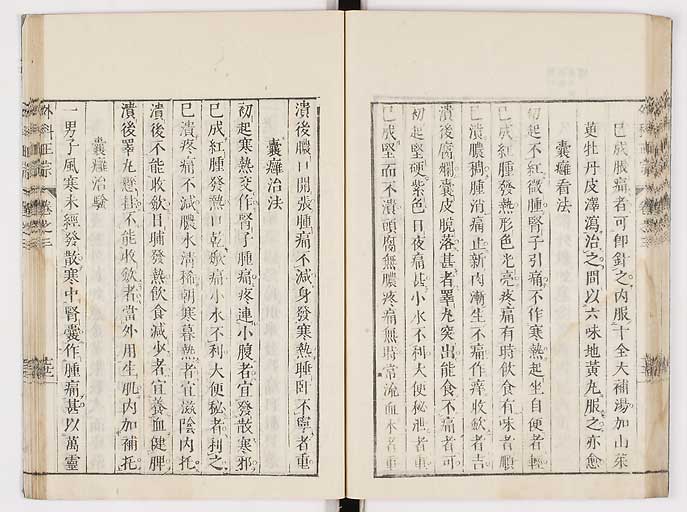 已成脹痛者可即針之內服十全大補湯加山茱
萸牡丹皮澤瀉治之間以六味地黃丸服之亦愈
囊癰看法
初起不紅微腫腎子引痛不作寒熱起坐自便者輕
已成紅腫發熱形色光亮疼痛有時飲食有味者順
已潰膿稠腫消痛止新肉漸生不痛作痒收斂者吉
潰後腐爛囊皮脫落甚者睪丸突出能食不痛者可
初起堅硬紫色日夜痛甚小水不利大便秘泄者重
已成堅而不潰頭腐無膿疼痛無時常流血水者重
潰後膿口開張腫痛不減身發寒熱睡臥不寧者重
囊癰治法
初起寒熱交作腎子腫痛疼連小腹者宜發散寒邪
已成紅腫發熱口乾焮痛小水不利大便秘者利之
已潰疼痛不減膿水清稀朝寒暮熱者宜滋陰內托
潰後不能收斂日晡發熱飲食減少者宜養血健脾
潰後睪丸懸掛不能收斂者當外用生肌內加補托
囊癰治驗
一男子風寒未經發散寒中腎囊作腫痛甚以萬靈
外科正宗 卷之三